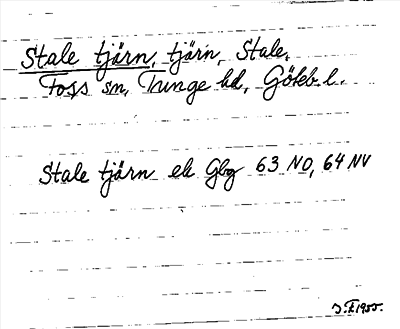 Stale tjärn, tjärn, Stale,
Foss sn, Tunge hd, Göteb. l.
Stale tjärn ek Gbg 63 NO, 64 NV
1955.